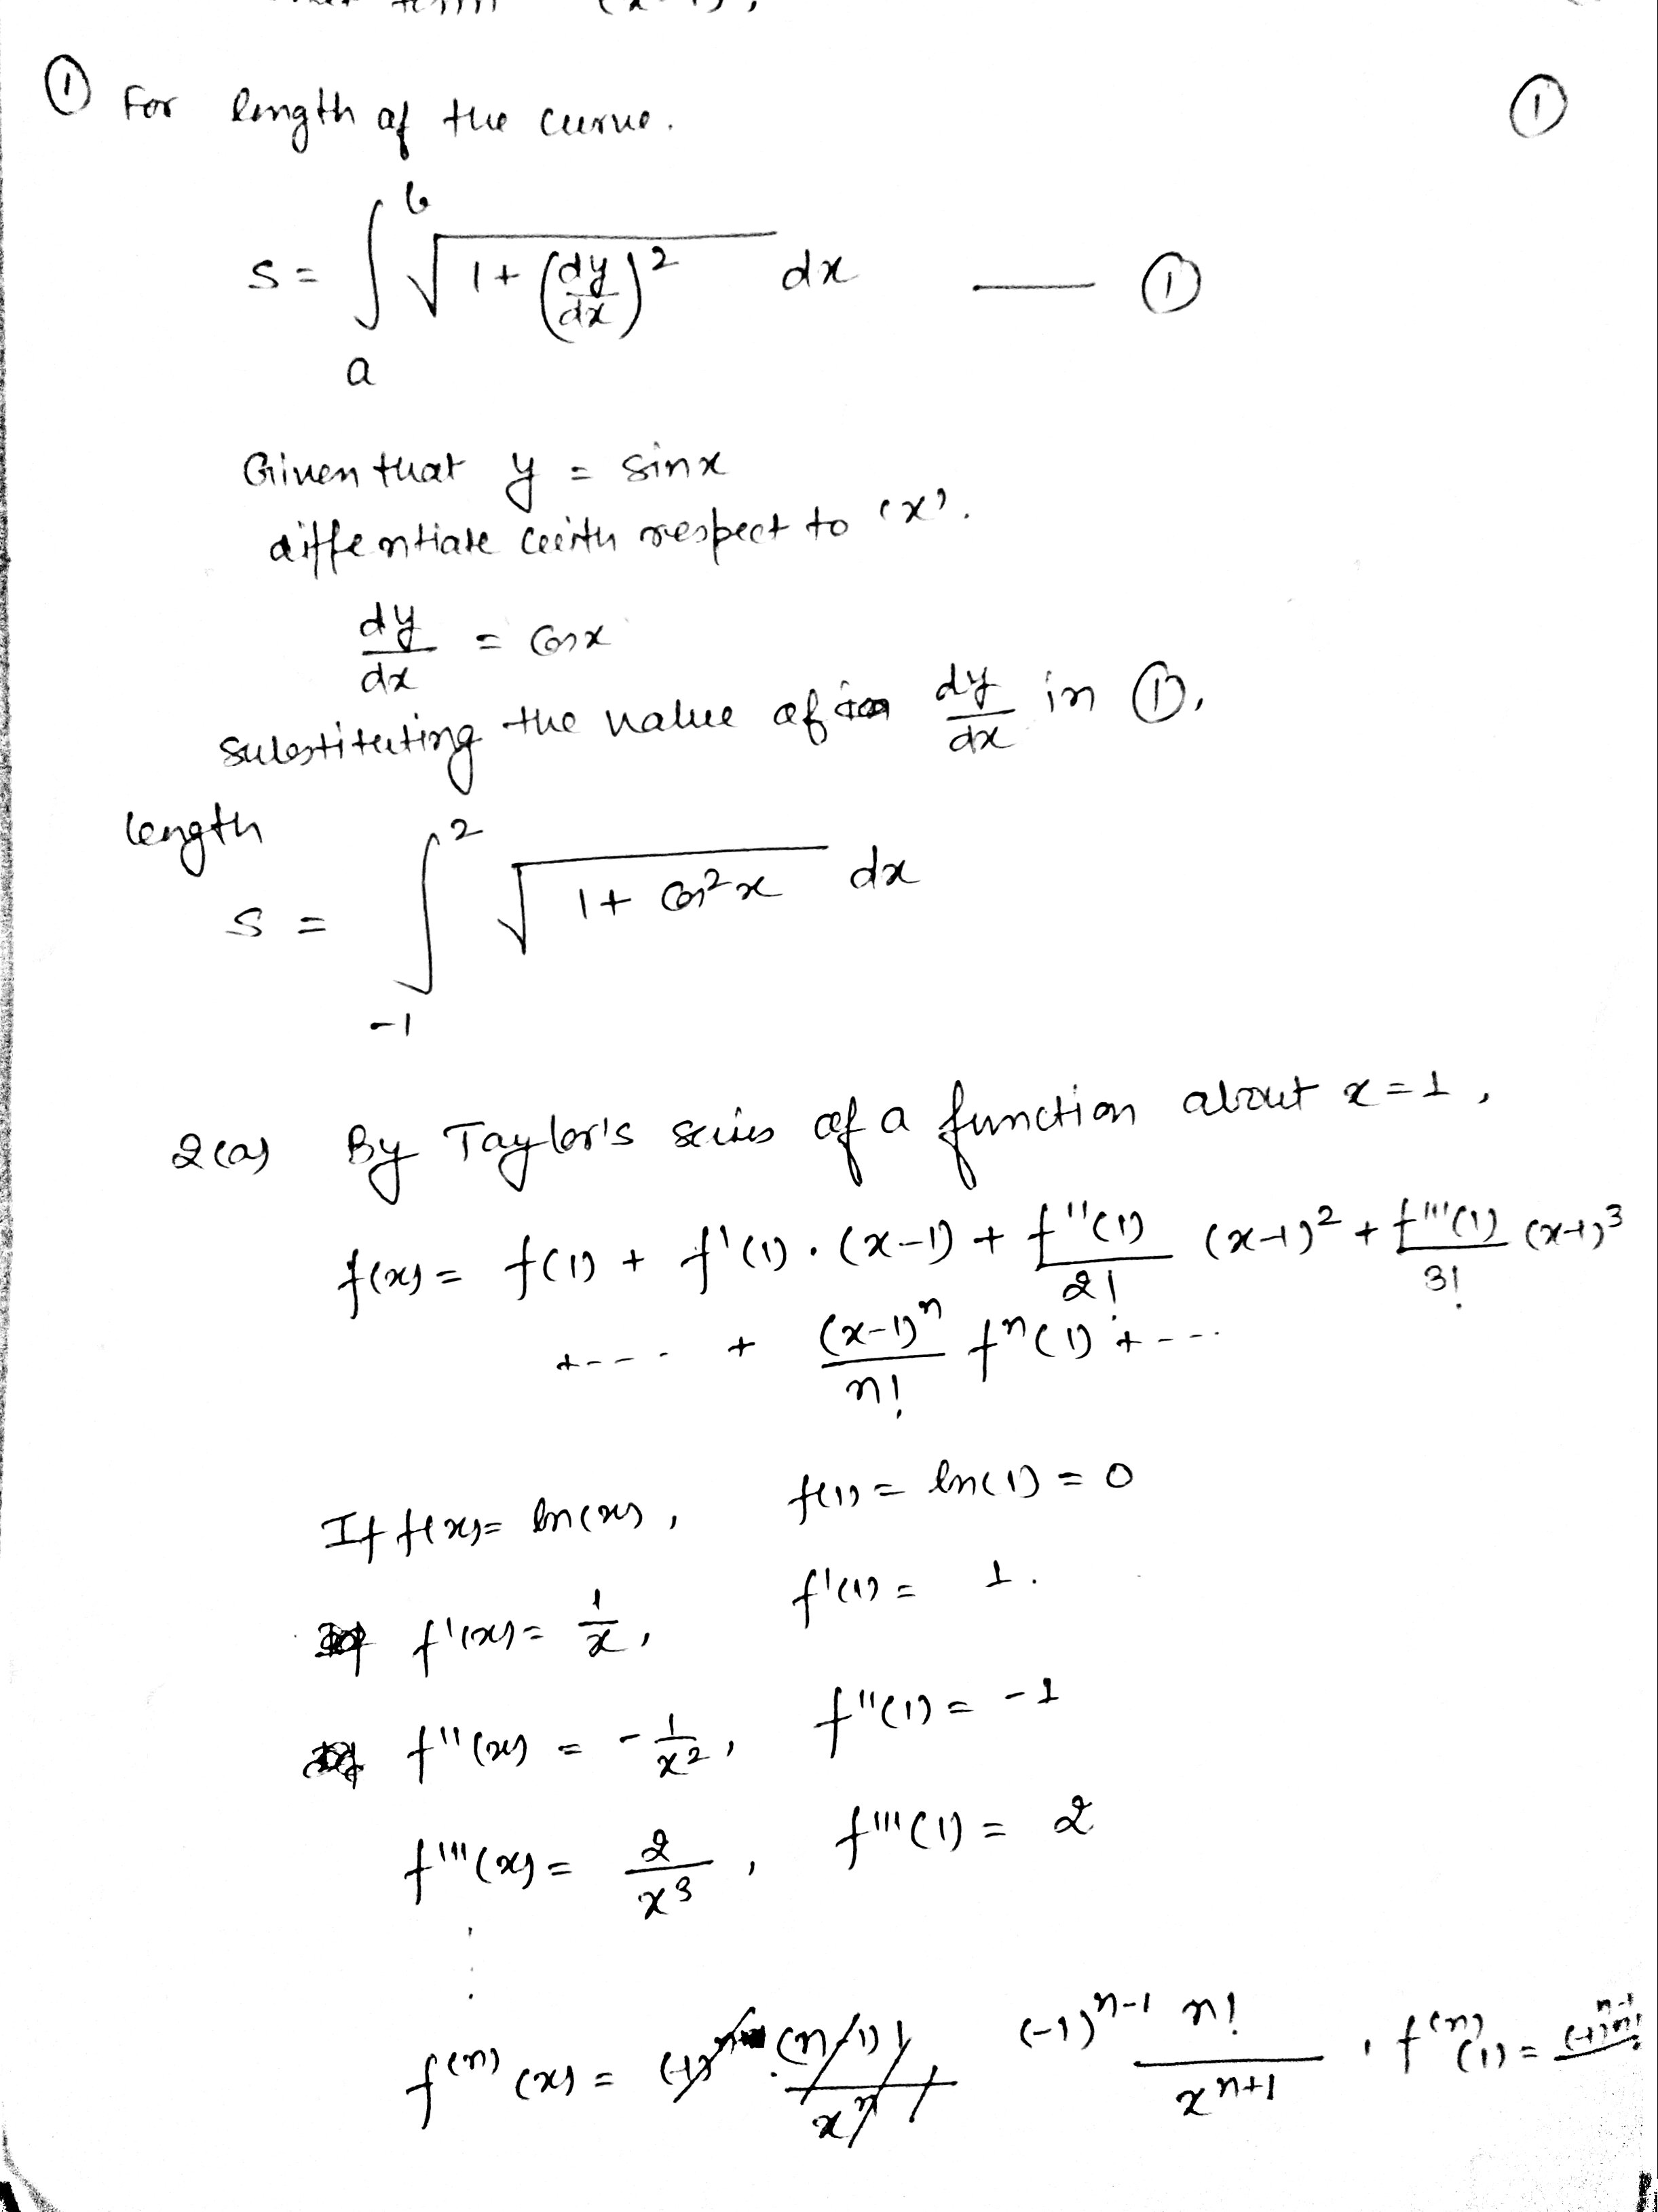 ① For length of the curve. ①
s = ∫_a^b √(1 + (dy/dx)²) dx — ①
Given that y = sinx
diffentiate with respect to 'x'.
dy/dx = cosx
substituting the value of dy/dx in ①,
length
s = ∫_{-1}^{2} √(1 + cos²x) dx
2(a) By Taylor's series of a function about x = 1,
f(x) = f(1) + f'(1) · (x-1) + f''(1)/2! (x-1)² + f'''(1)/3! (x-1)³
+ ---- + (x-1)ⁿ/n! fⁿ(1) + ----
If f(x) = ln(x), f(1) = ln(1) = 0
f'(x) = 1/x, f'(1) = 1.
f''(x) = -1/x², f''(1) = -1
f'''(x) = 2/x³, f'''(1) = 2
⋮
f⁽ⁿ⁾(x) = (-1)ⁿ⁻¹ n!/xⁿ⁺¹, f⁽ⁿ⁾(1) = (-1)ⁿ⁻¹ n!